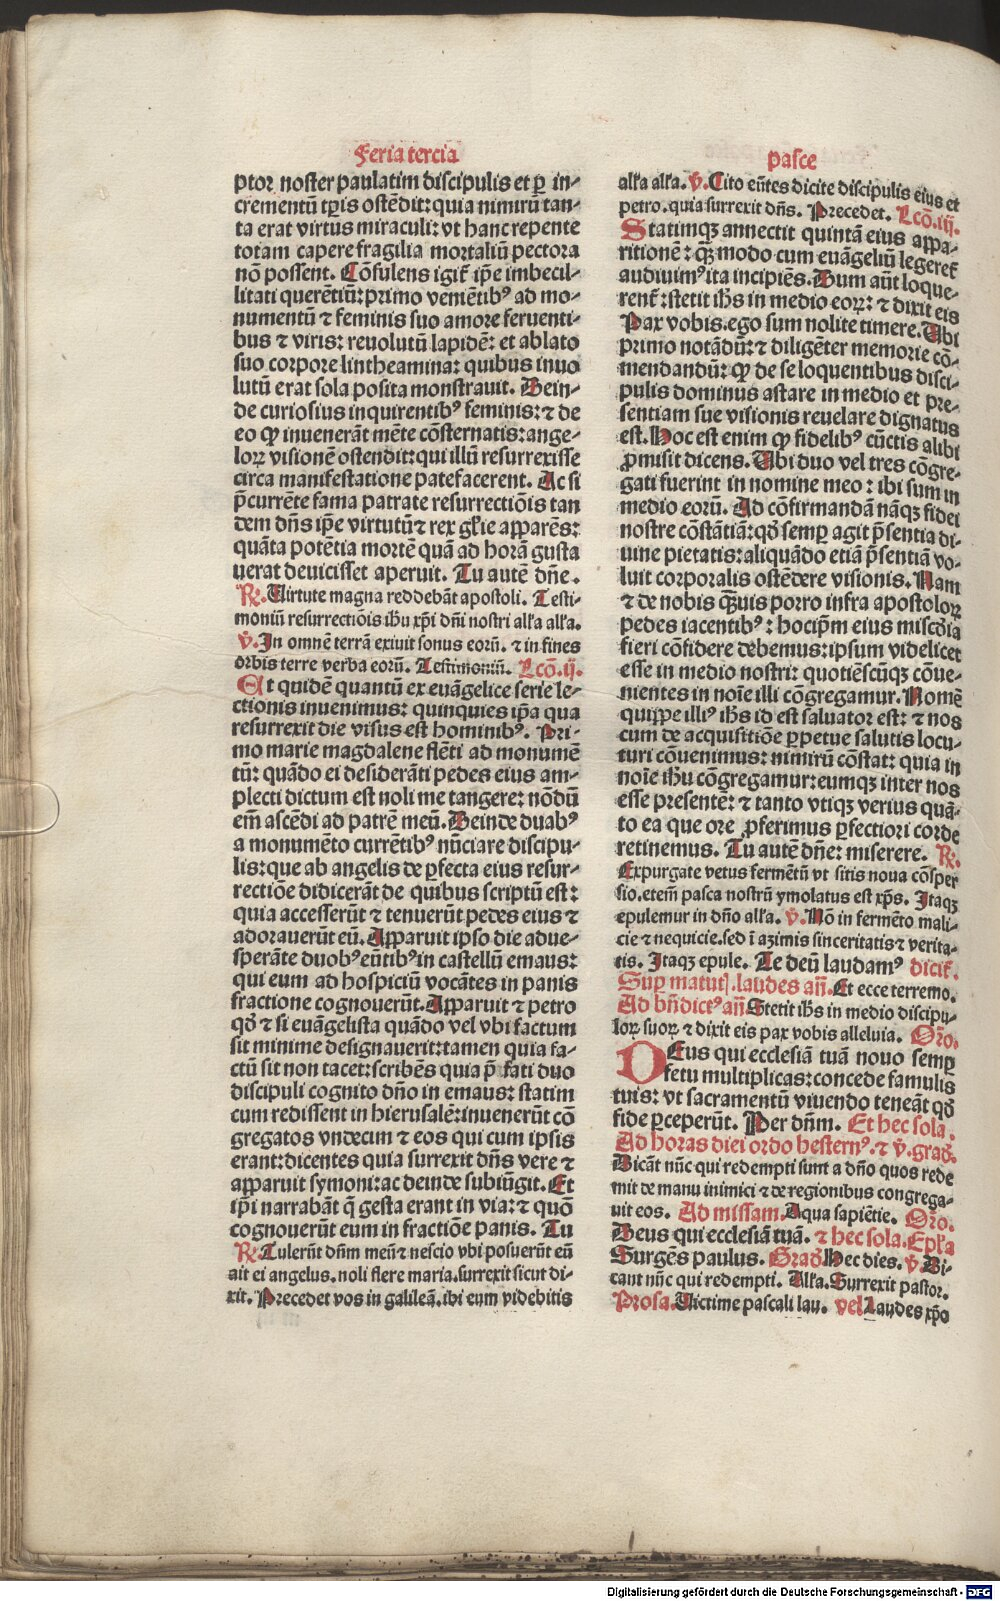 Feria tercia
ptor noster paulatim discipulis et ꝑ in-
crementũ tꝑis ostẽdit: quia nimirũ tan-
ta erat virtus miraculi: vt hanc repente
totam capere fragilia mortaliũ pectora
nõ possent. Cõsulens igit᷑ ip̃e imbecil-
litati querẽtiũ: primo veniẽtibꝰ ad mo-
numentũ ⁊ feminis suo amore feruenti-
bus ⁊ viris: reuolutũ lapidẽ: et ablato
suo corpore lintheamina: quibus inuo
lutũ erat sola posita monstrauit. Dein-
de curiosius inquirentibꝰ feminis: ⁊ de
eo ꝙ inuenerãt mẽte cõsternatis: ange-
loꝝ visionẽ ostendit: qui illũ resurrexisse
circa manifestatione patefacerent. Ac si
p̃currẽte fama patrate resurrectiõis tan
dem dñs ip̃e virtutũ ⁊ rex gl̃ie apparẽs:
quãta potẽtia mortẽ quã ad horã gusta
uerat deuicisset aperuit. Tu autẽ dñe.
℞. Uirtute magna reddebãt apostoli. Testi-
moniũ resurrectiõis ih̃u xp̃i dñi nostri all̃a all̃a.
℣. In omnẽ terrã exiuit sonus eorũ. ⁊ in fines
orbis terre verba eorũ. Testimoniũ. Lcõ. ij.
Et quidẽ quantũ ex euãgelice serie le-
ctionis inuenimus: quinquies ip̃a qua
resurrexit die visus est hominibꝰ. Pri-
mo marie magdalene flẽti ad monumẽ
tũ: quãdo ei desiderãti pedes eius am-
plecti dictum est noli me tangere: nõdũ
em̃ ascẽdi ad patrẽ meũ. Deinde duabꝰ
a monumẽto currẽtibꝰ nũciare discipu-
lis: que ab angelis de ꝑfecta eius resur-
rectiõe didicerãt de quibus scriptũ est:
quia accesserũt ⁊ tenuerũt pedes eius ⁊
adorauerũt eũ. Apparuit ipso die adue-
sperãte duobꝰ eũtibꝰ in castellũ emaus:
qui eum ad hospiciũ vocãtes in panis
fractione cognouerũt. Apparuit ⁊ petro
qđ ⁊ si euãgelista quãdo vel vbi factum
sit minime designauerit: tamen quia fa-
ctũ sit non tacet: scribẽs quia p̃fati duo
discipuli cognito dño in emaus: statim
cum redissent in hierusalẽ: inuenerũt cõ
gregatos vndecim ⁊ eos qui cum ipsis
erant: dicentes quia surrexit dñs vere ⁊
apparuit symoni: ac deinde subiũgit. Et
ip̃i narrabãt q̃ gesta erant in via: ⁊ quõ
cognouerũt eum in fractiõe panis. Tu
℞. Tulerũt dñm meũ ⁊ nescio vbi posuerũt eũ
ait ei angelus. noli flere maria. surrexit sicut di-
xit. Precedet vos in galileã. ibi eum videbitis
pasce
all̃a all̃a. ℣. Cito eũtes dicite discipulis eius et
petro. quia surrexit dñs. Precedet. Lcõ. iij.
Statimqꝫ annectit quintã eius appa-
ritionẽ: qꝫ modo cum euãgeliũ legeret᷑
audiuimꝰ ita incipiẽs. Dum aũt loque-
rent᷑: stetit ih̃s in medio eoꝝ: ⁊ dixit eis
Pax vobis. ego sum nolite timere. Ubi
primo notãdũ: ⁊ diligẽter memorie cõ-
mendandũ: ꝙ de se loquentibus disci-
pulis dominus astare in medio et pre-
sentiam sue visionis reuelare dignatus
est. Hoc est enim ꝙ fidelibꝰ cũctis alibi
ꝓmisit dicens. Ubi duo vel tres cõgre-
gati fuerint in nomine meo: ibi sum in
medio eorũ. Ad cõfirmandã nãqꝫ fidei
nostre cõstãtiã: qđ semꝑ agit p̃sentia di-
uine pietatis: aliquãdo etiã p̃sentiã vo-
luit corporalis ostẽdere visionis. Nam
⁊ de nobis q̃uis porro infra apostoloꝝ
pedes iacentibꝰ: hocip̃m eius miscđia
fieri cõfidere debemus: ipsum videlicet
esse in medio nostri: quotiẽscũqꝫ cõue-
nientes in noĩe illi cõgregamur. Nomẽ
quippe illiꝰ ih̃s id est saluator est: ⁊ nos
cum de acquisitiõe ꝑpetue salutis locu-
turi cõuenimus: nimirũ cõstat: quia in
noĩe ih̃u cõgregamur: eumqꝫ inter nos
esse presentẽ: ⁊ tanto vtiqꝫ verius quã-
to ea que ore ꝓferimus ꝑfectiori corde
retinemus. Tu autẽ dñe: miserere. ℞.
Expurgate vetus fermẽtũ vt sitis noua cõsper
sio. etem̃ pasca nostrũ ymolatus est xp̃s. Itaqꝫ
epulemur in dño all̃a. ℣. Nõ in fermẽto mali-
cie ⁊ nequicie. sed ĩ azimis sinceritatis ⁊ verita-
tis. Itaqꝫ epule. Te deũ laudamꝰ dicit᷑.
Suꝑ matut̃. laudes añ. Et ecce terremo.
Ad bñdictꝰ añ. Stetit ih̃s in medio discipu-
loꝝ suoꝝ ⁊ dixit eis pax vobis alleluia. Or̃o.
DEus qui ecclesiã tuã nouo semꝑ
fetu multiplicas: concede famulis
tuis: vt sacramentũ viuendo teneãt qđ
fide ꝑceperũt. Per dñm. Et hec sola.
Ad horas diei ordo hesternꝰ. ⁊ ℣. grad̃.
Dicãt nũc qui redempti sunt a dño quos rede
mit de manu inimici ⁊ de regionibus congrega-
uit eos. Ad missam. Aqua sapiẽtie. Or̃o.
Deus qui ecclesiã tuã. ⁊ hec sola. Epl̃a
Surgẽs paulus. Grad̃ Hec dies. ℣. Di-
cant nũc qui redempti. All̃a. Surrexit pastor.
Prosa. Uictime pascali lau. vel Laudes xp̃o
Digitalisierung gefördert durch die Deutsche Forschungsgemeinschaft - DFG